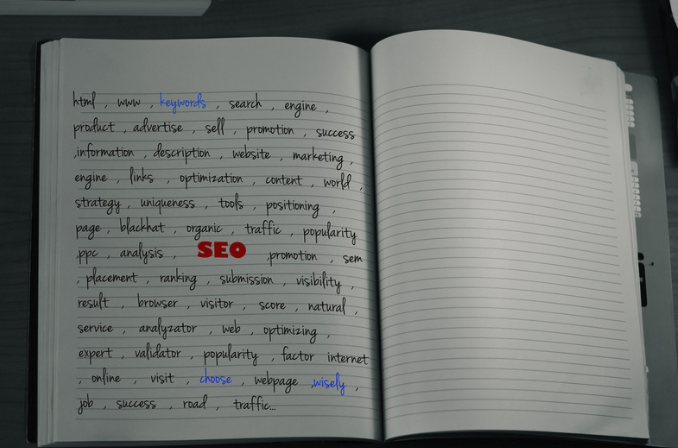 html , www , keywords , search , engine ,
product , advertise , sell , promotion , success
,information , description , website , marketing ,
engine , links , optimization , content , world ,
strategy , uniqueness , tools , positioning ,
page , blackhat , organic , traffic , popularity
,ppc , analysis , SEO ,promotion , sem
, placement , ranking , submission , visibility ,
result , browser , visitor , score , natural ,
service , analyzator , web , optimizing ,
expert , validator , popularity , factor internet
, online , visit , choose , webpage ,wisely ,
job , success , road , traffic...